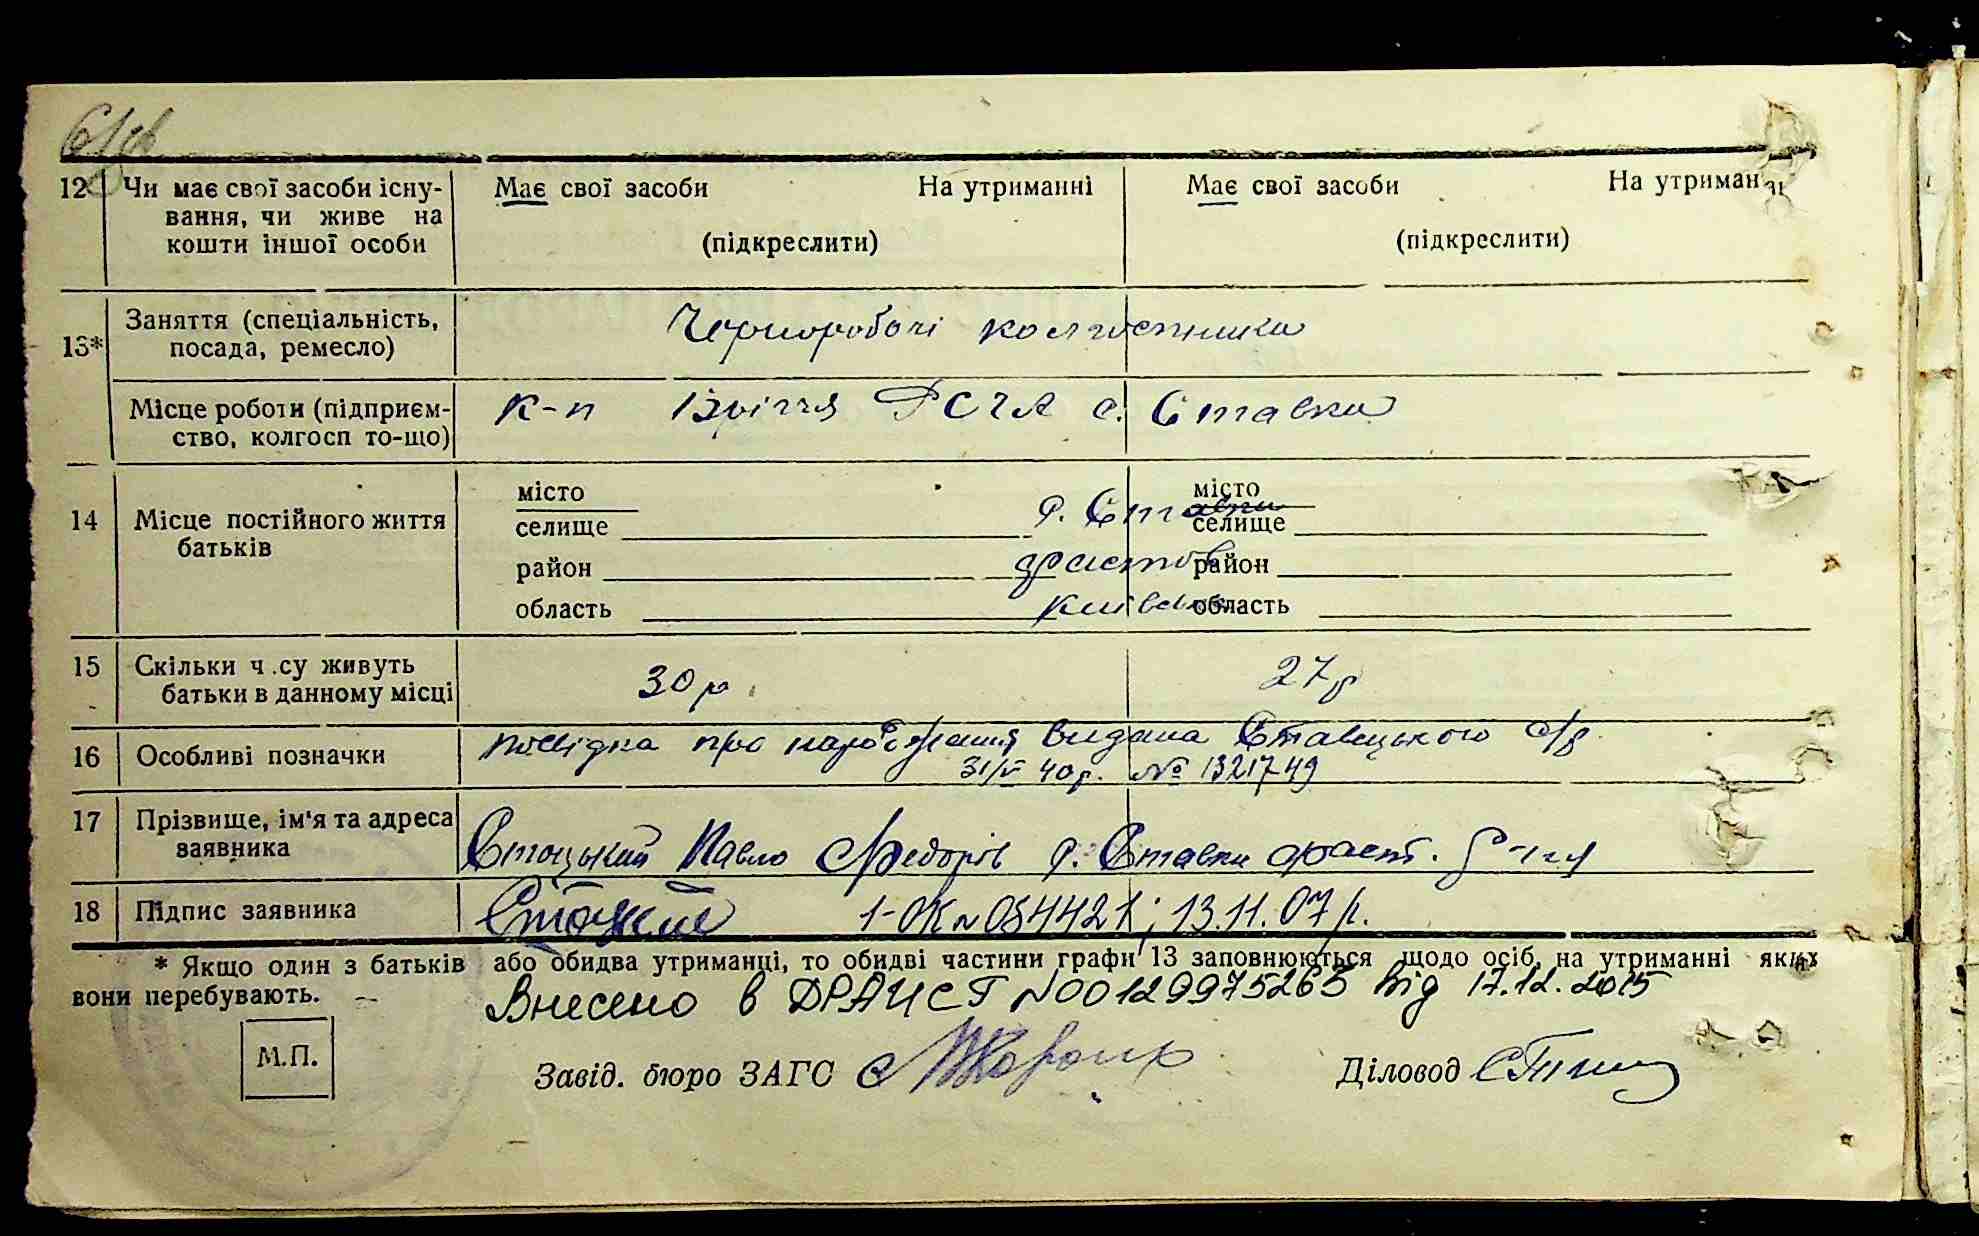 12 Чи має свої засоби існу- Має свої засоби На утриманні Має свої засоби На утриман
вання, чи живе на
кошти іншої особи (підкреслити) (підкреслити)
13* Заняття (спеціальність, Чорноробочі колгоспники
посада, ремесло)
Місце роботи (підприєм- к-п річчя РСЧА с. Ставки
ство, колгосп то-що)
14 Місце постійного життя
батьків
місто місто
селище с. Ставки селище
район район
область Київська область
15 Скільки ч.су живуть 30 р. 27 р
батьки в данному місці
16 Особливі позначки посвідка про народження видана Ставецького с/р
31/V 40 р. № 1321749
17 Прізвище, ім'я та адреса
заявника
Стоцький Павло Федорів с. Ставки фаст. р-ня
18 Підпис заявника 1-ОК № 054421; 13.11.07 р.
* Якщо один з батьків або обидва утриманці, то обидві частини графи 13 заповнюються щодо осіб, на утриманні яких
вони перебувають.
Внесено в ДРАЦСГ №00129975265 від 17.12.2015
М.П.
Завід. бюро ЗАГС Діловод